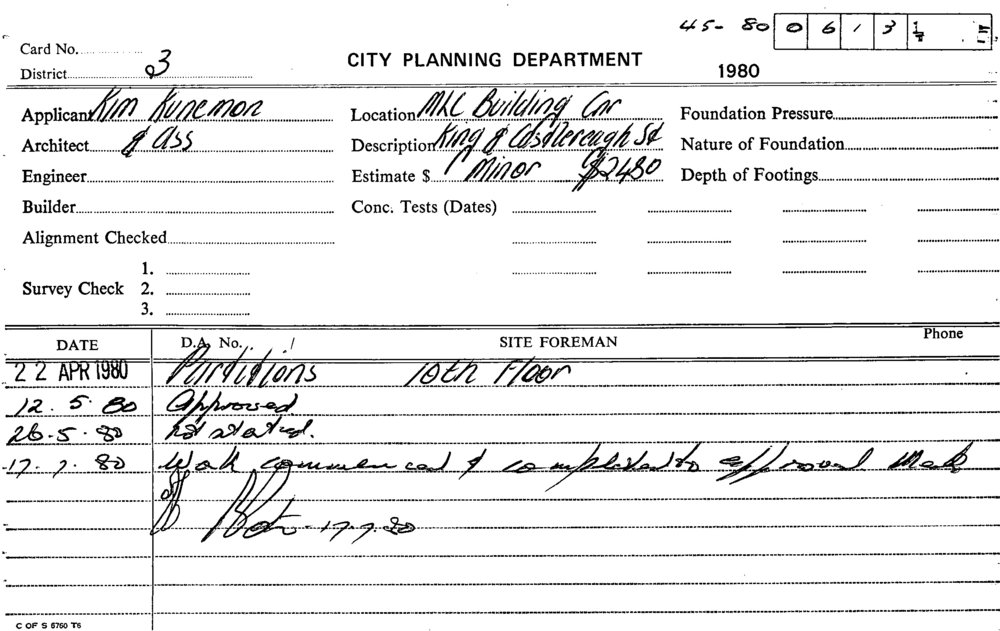 45- 80 0 6 1 3
Card No.
District 3
CITY PLANNING DEPARTMENT
1980
Applicant Kim Kunemon Location MLC Building Cnr Foundation Pressure
Architect & Ass Description King & Castlereagh St Nature of Foundation
Engineer Estimate $ Minor $2480 Depth of Footings
Builder Conc. Tests (Dates)
Alignment Checked
1.
Survey Check 2.
3.
DATE D.A. No. / SITE FOREMAN Phone
22 APR 1980 Partitions 10th Floor
12. 5. 80 Approved
26. 5. 80 Not started.
17. 7. 80 Work commenced & completed to approval
17.7.80
C OF S 5760 T6